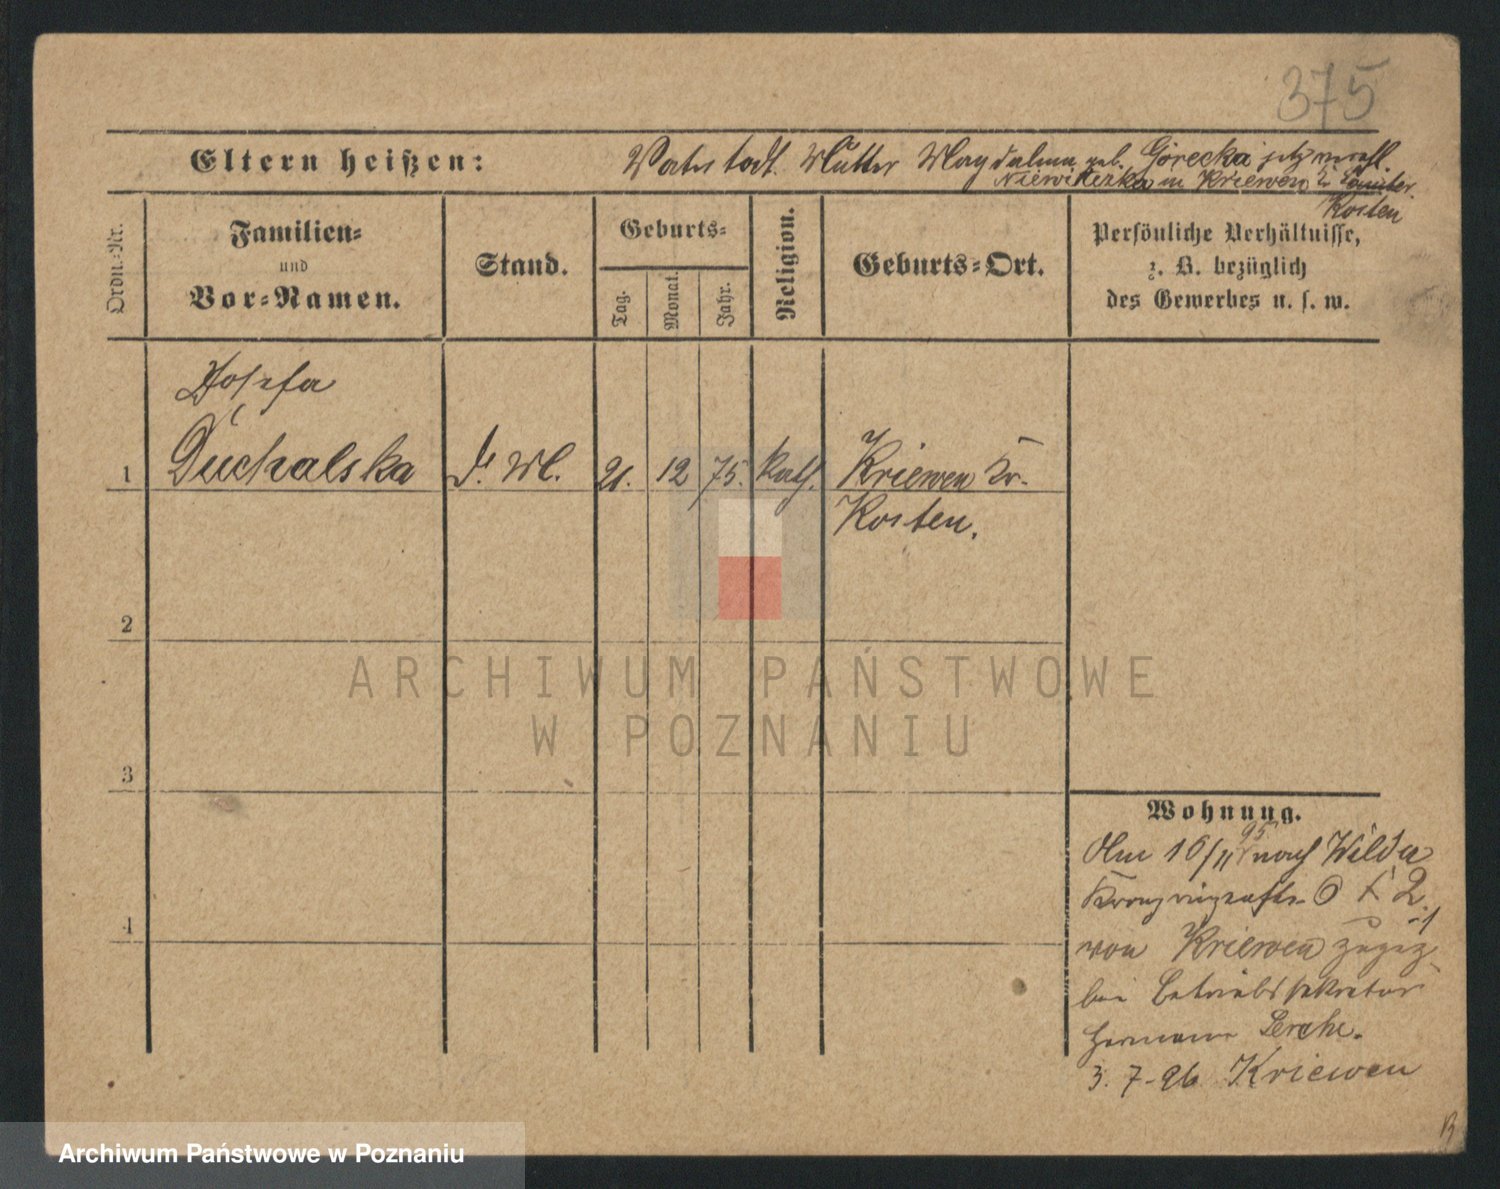 375
Eltern heißen: Vater todt. Mutter Magdalena geb. Górecka jetz verehl.
in Kriewen
Kosten
Ordn.-Nr.
Familien-
und
Vor-Namen.
Stand.
Geburts-
Tag.
Monat.
Jahr.
Religion.
Geburts-Ort.
Persönliche Verhältnisse,
z. B. bezüglich
des Gewerbes u. s. w.
Josefa
1 Duchalska 21. 12 75. Kath. Kriewen Kr.
Kosten.
2
3
4
Wohnung.
95
Am 16/11 nach Wilda
2
von Kriewen zugez.
bei Betriebssekretär
Hermann Lerche.
3. 7. 96 Kriewen
ARCHIWUM PAŃSTWOWE
W POZNANIU
Archiwum Państwowe w Poznaniu